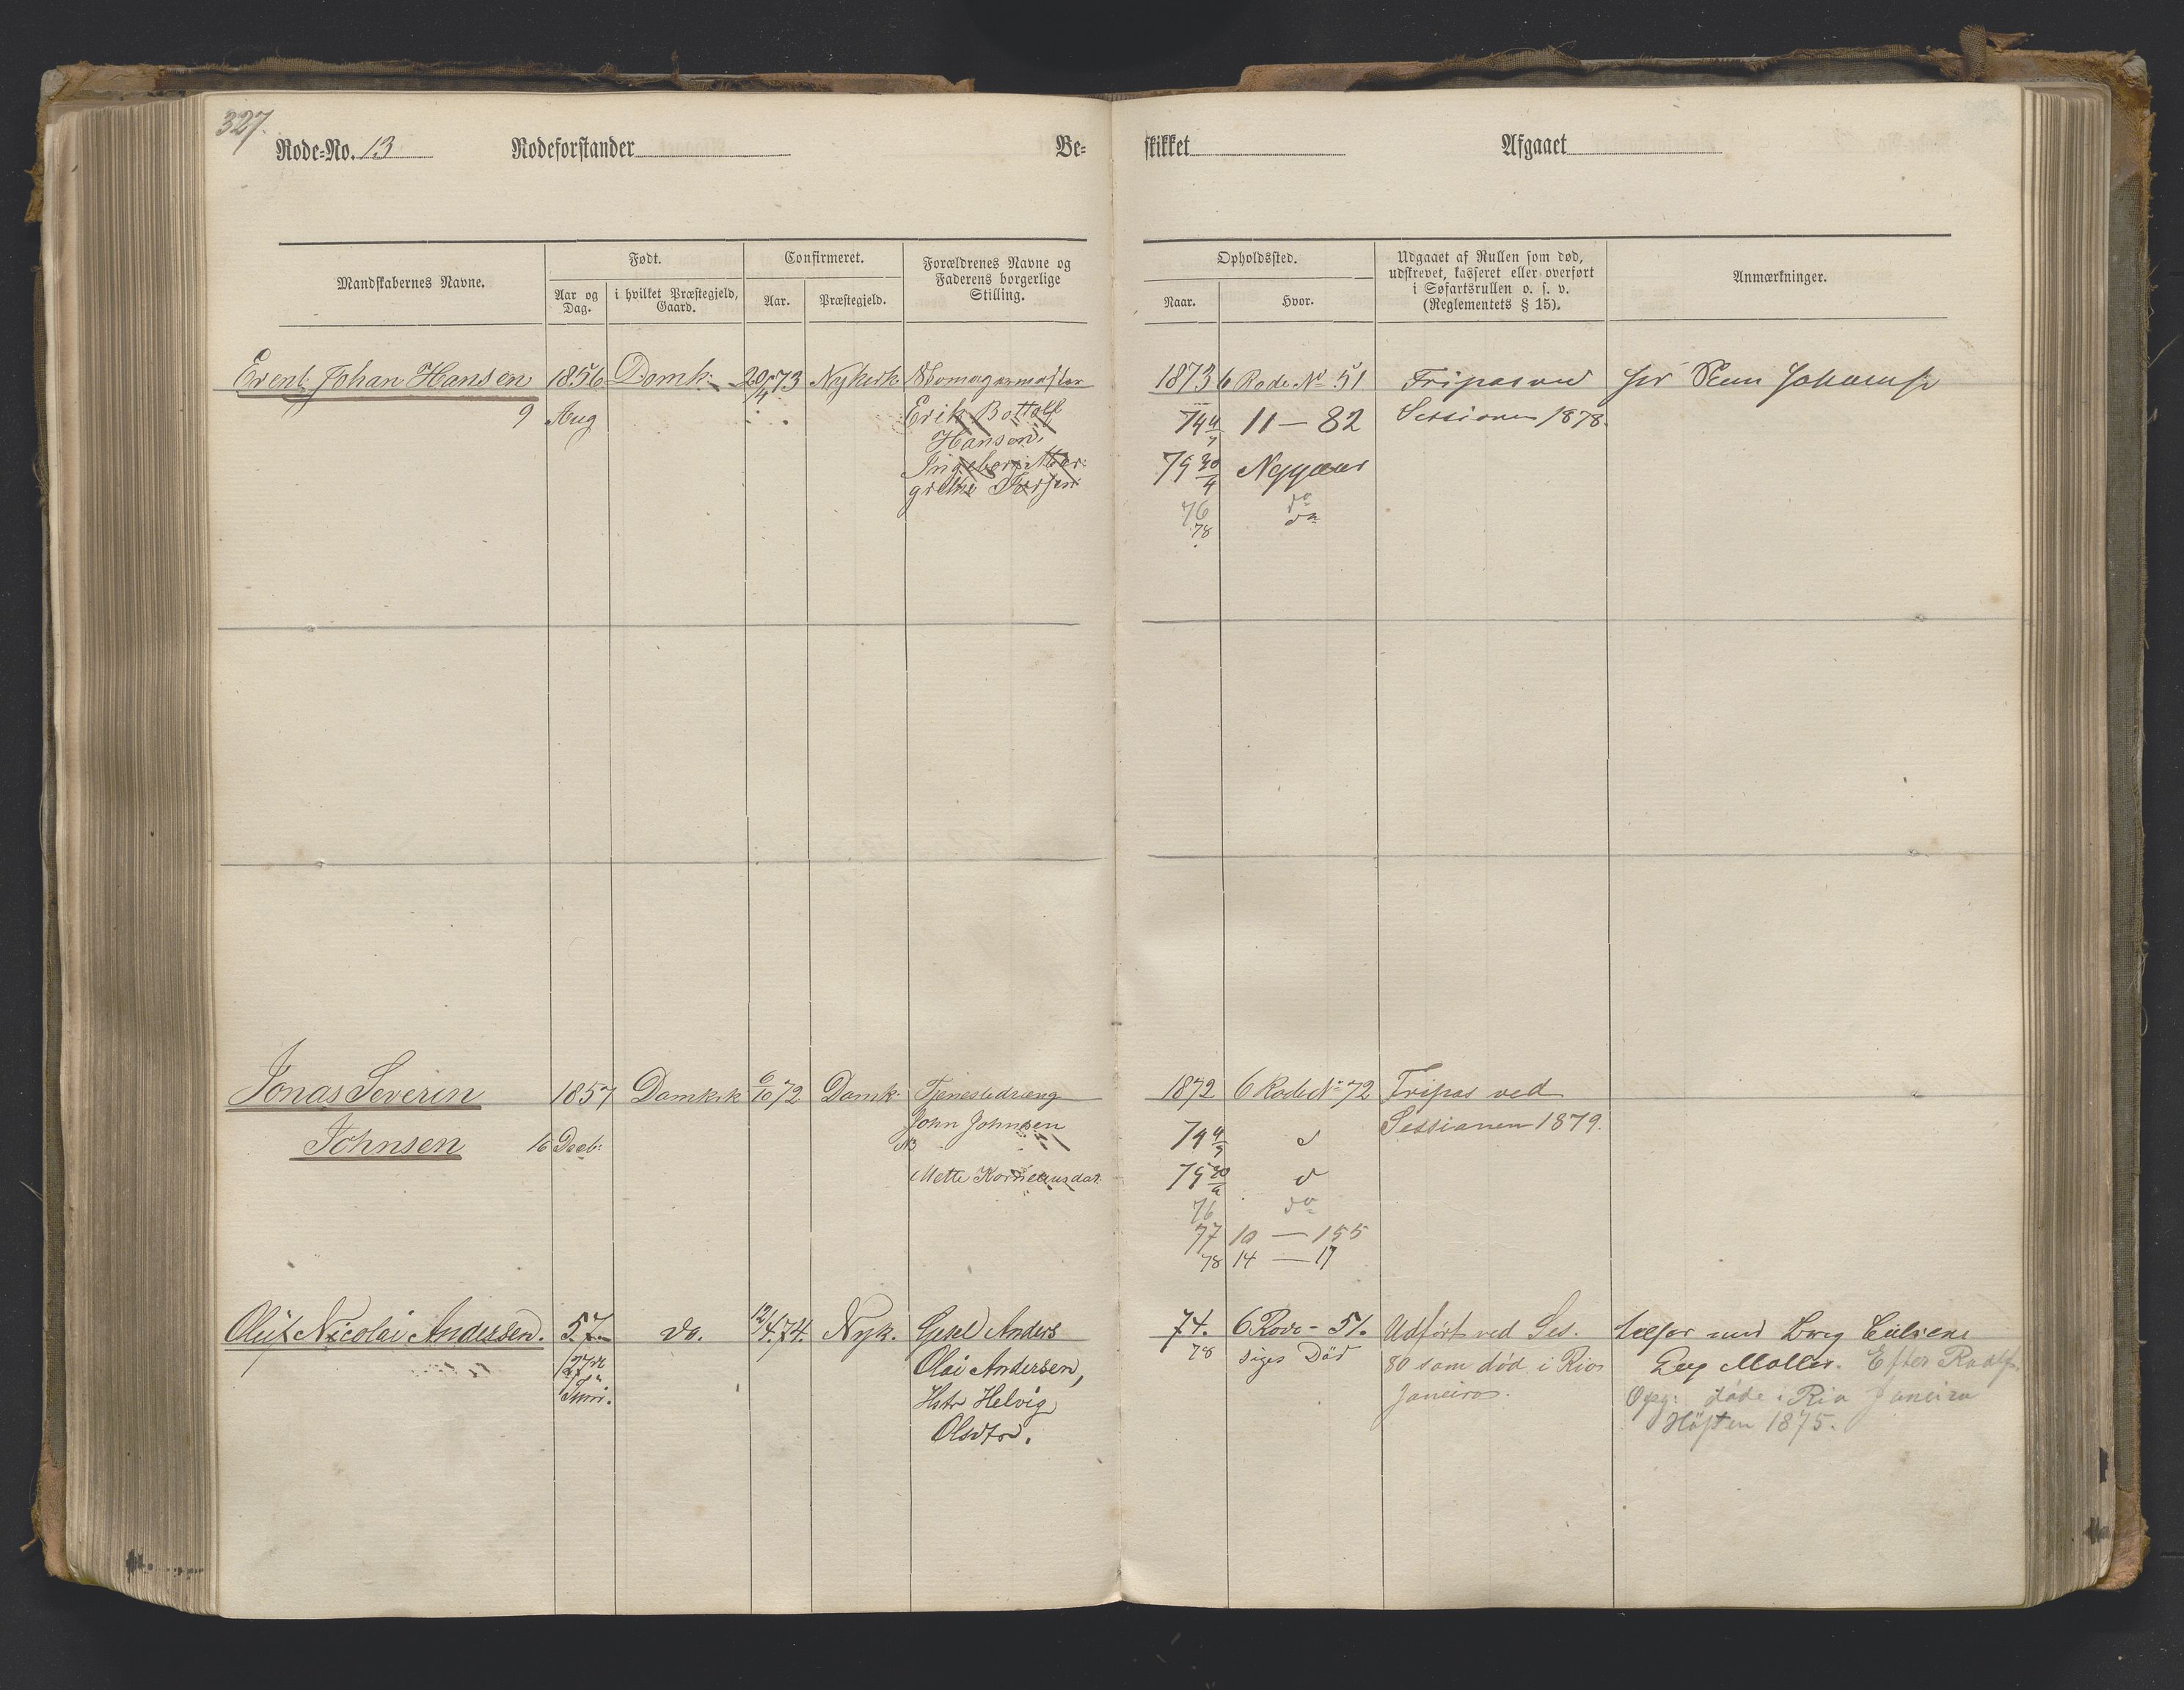 327.
Rode-No. 13 Rodeforstander Be-
skikket Afgaaet
Mandskabernes Navne.
Født.
Aar og Dag.
i hvilket Præstegjeld, Gaard.
Confirmeret.
Aar.
Præstegjeld.
Forældrenes Navne og
Faderens borgerlige
Stilling.
Opholdssted.
Naar.
Hvor.
Udgaaet af Rullen som død,
udskrevet, kasseret eller overført
i Søfartsrullen o. s. v.
(Reglementets § 15).
Anmærkninger.
Johan Hansen 1856 Domk: 20/4 73 Nykirk Skomagermester
9 Aug
Erik Bottolf
Hansen
Ingeborg Mar-
grethe
1873 6 Rode No 51 Fripas ved
74 4/9 11 — 82 Sessionen 1878.
75 30/4 Nygaar
76 do
78 do
Jonas Severin 1857 Domkirk 6/10 72 Domk: Tjenestedræng
Johnsen 16 Decb: John Johnsen
Mette
1872 6 Rode No 72 Fripas ved
74 4/9 d Sessionen 1879.
75 30/4 d
76 do
77 10 — 155
78 14 — 17
Oluf Nicolai Andersen. 57. do. 12/4 74. Nyk. Gesel Anders
27de
Juni.
Olai Andersen,
Hstr Helvig
Olsdtr.
74. 6 Rode - 51. Udført ved Ses.
78 siges Död 80 som död i Rio
Janeiro.
med Brig
Møller. Efter Rodef.
Opg: døde i Rio Janeiro
Høsten 1875.